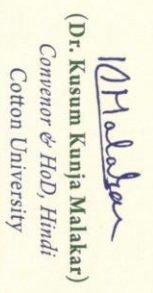 KMalakar
(Dr. Kusum Kunja Malakar)
Convenor & HoD, Hindi
Cotton University